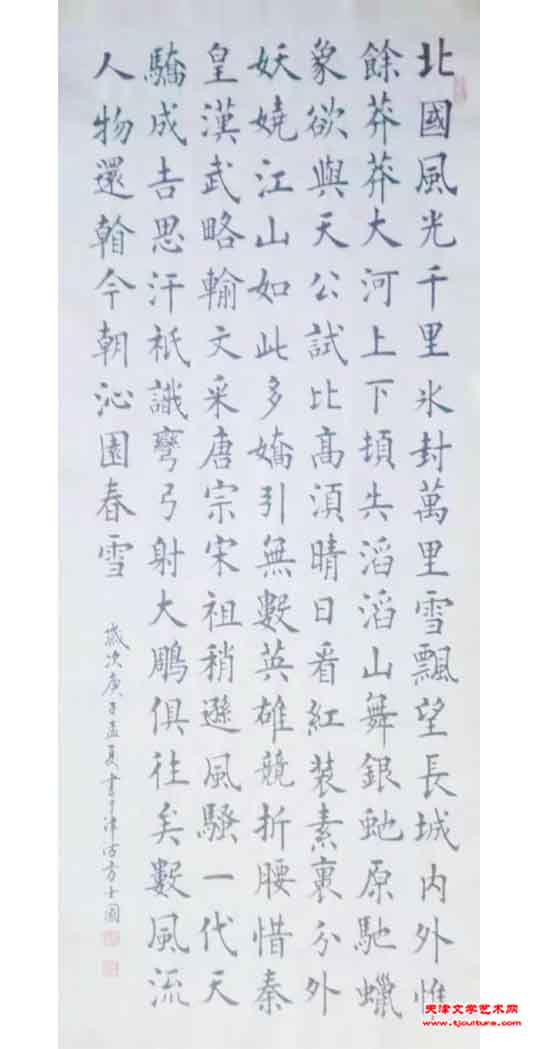 北國風光千里氷封萬里雪飄望長城内外惟
餘莽莽大河上下頓失滔滔山舞銀虵原馳蠟
象欲與天公試比高湏晴日看紅装素裹分外
妖嬈江山如此多嬌引無數英雄競折腰惜秦
皇漢武略輸文采唐宗宋祖稍遜風騷一代天
驕成吉思汗祇識彎弓射大鵰俱往矣數風流
人物還看今朝沁園春雪
歲次庚子孟夏書于津沽方士國
天津文学艺术网
www.tjculture.com